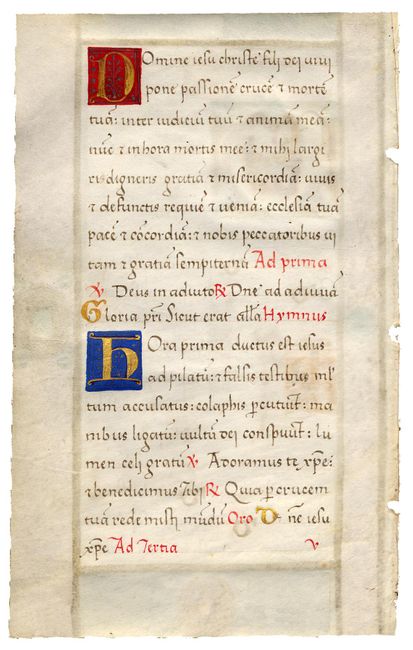 Domine iesu christe fili dei vivi
pone passionē crucē ⁊ mortē
tuā: inter iudiciū tuū ⁊ animā meā:
nūc ⁊ in hora mortis mee: ⁊ mihi largi
ri digneris gratiā ⁊ misericordiā: vivis
⁊ defunctis requiē ⁊ veniā: ecclesiā tuā
pacē ⁊ cōcordiā: ⁊ nobis peccatoribus vi
tam ⁊ gratiā sempiternā Ad prima
℣ Deus in adiuto ℟ Dne ad adiuvā
Gloria pri Sicut erat alla Hymnus
Hora prima ductus est iesus
ad pilatū: ⁊ falsis testibus ml
tum accusatus: colaphis pcutiut: ma
nibus ligatū: vultū dei conspuūt: lu
men celi gratū ℣ Adoramus te xpe:
⁊ benedicimus tibi ℟ Quia p crucem
tuā redemisti mūdū Oro Dne iesu
xpe Ad Tertia ℣